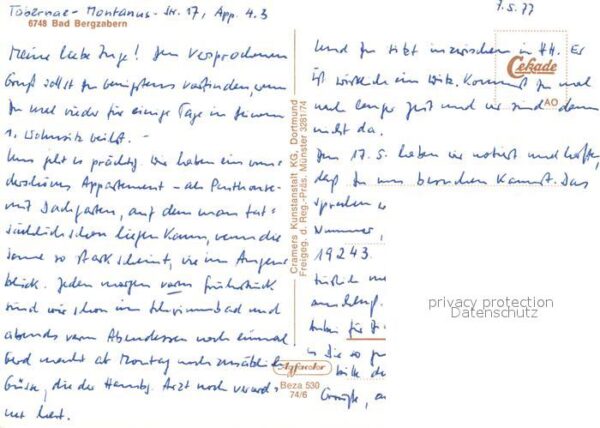 Tabernae-Montanus-Str. 17, App. 4.3
6748 Bad Bergzabern
7.5.77
Meine liebe Inge! Den versprochenen
Gruß sollst Du wenigstens vorfinden, wenn
Du mal wieder für einige Tage in Deinem
1. Wohnsitz weilst. -
Uns geht es prächtig. Wir haben ein wun-
derschönes Appartement - als Penthouse -
mit Dachgarten, auf dem man tat-
sächlich schon liegen kann, wenn die
Sonne so stark scheint, wie im Augen-
blick. Jeden Morgen vorm Frühstück
sind wir schon im Schwimmbad und
abends vorm Abendessen noch einmal
Gerd macht ab Montag noch zusätzlich
Güsse, die der Hambg. Arzt noch verord-
net hat.
Cramers Kunstanstalt KG, Dortmund
Freigeg. d. Reg.-Präs. Münster 328174
Agfacolor
Beza 530
74/6
Cekade
AO
Und Du sitzt inzwischen in HH. Er
ist wirklich ein Witz. Kommst Du mal
nach langer Zeit und wir sind dann
nicht da.
Den 17.5. haben wir notiert und hoffen,
daß Du uns besuchen kannst. Das
sprechen
Nummer,
19243.
türlich
anschl.
haben für
Die so
bitte
Grüße,
privacy protection
Datenschutz